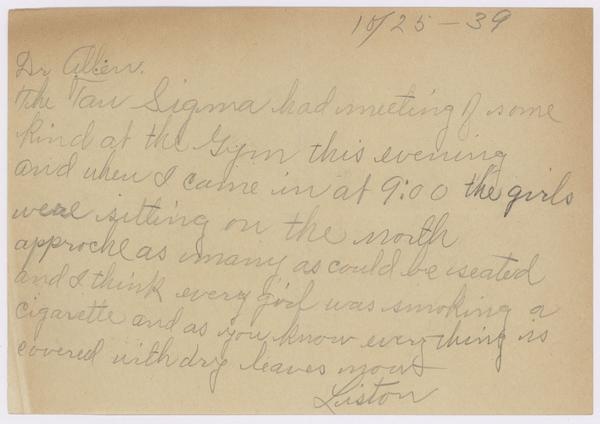 10/25-39
Dr Allen.
The Tau Sigma had meeting of some
kind at the Gym this evening
and when I came in at 9:00 the girls
were sitting on the north
approche as many as could be seated
and I think every girl was smoking a
cigarette and as you know every thing is
covered with dry leaves now
Liston